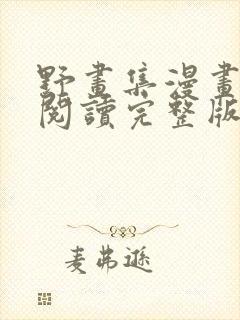 野畫集漫畫
閱讀完整版
麦弗遜